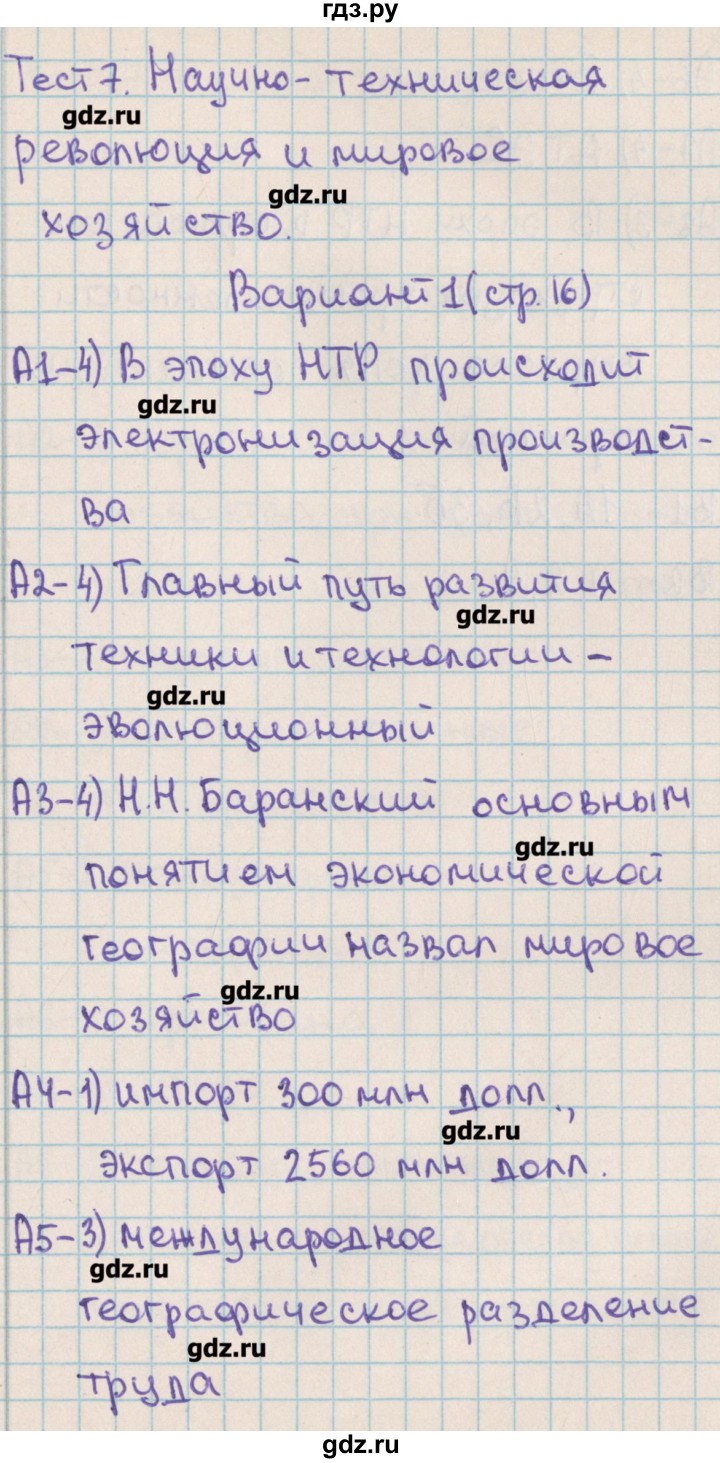 гдз.ру
Тест 7. Научно-техническая
gdz.ru
революция и мировое
gdz.ru
хозяйство.
Вариант 1 (стр. 16)
А1-4) В эпоху НТР происходит
gdz.ru
электронизация производст-
ва
А2-4) Главный путь развития
gdz.ru
техники и технологии -
gdz.ru
эволюционный
А3-4) Н.Н. Баранский основным
gdz.ru
понятием экономической
географии назвал мировое
gdz.ru
хозяйство
А4-1) импорт 300 млн долл.,
gdz.ru
экспорт 2560 млн долл.
А5-3) международное
gdz.ru
географическое разделение
gdz.ru
труда
gdz.ru